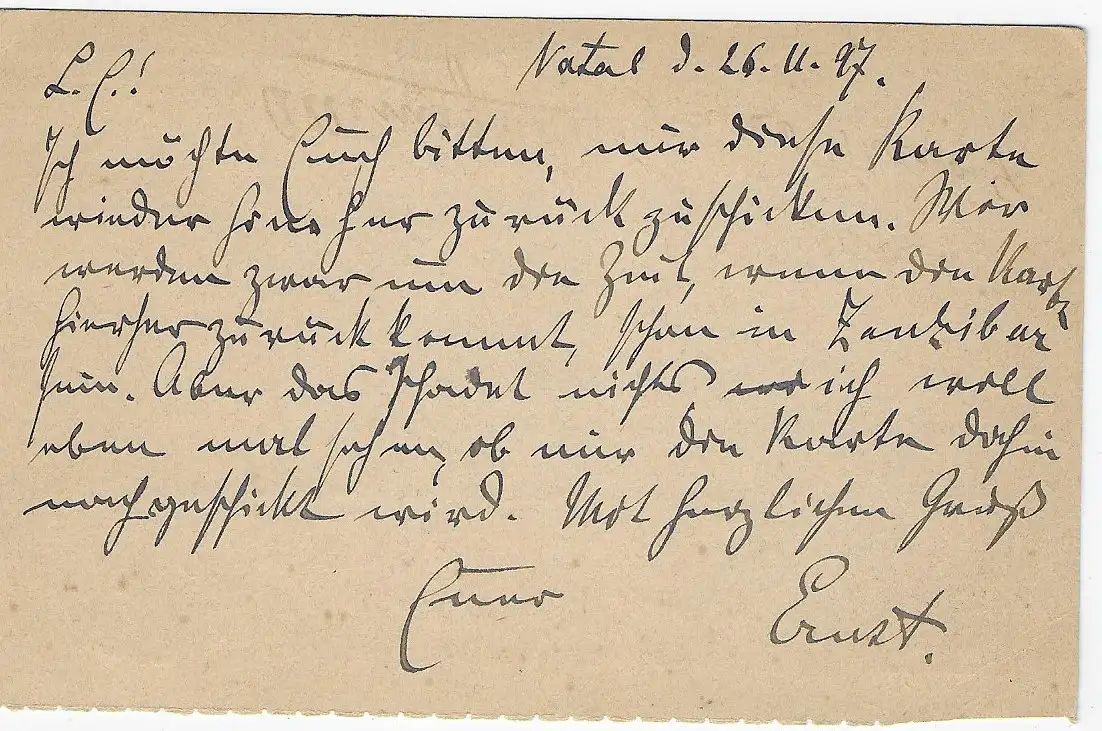 Natal d. 26.11.97.
L. E.!
Ich möchte Euch bitten, mir diese Karte
wieder hierher zurückzuschicken. Wir
werden zwar um die Zeit, wenn die Karte
hierher zurückkommt, schon in Zanzibar
sein. Aber das schadet nichts, ich will
eben mal sehen, ob mir die Karte dahin
nachgeschickt wird. Mit herzlichem Gruß
Euer
Ernst.